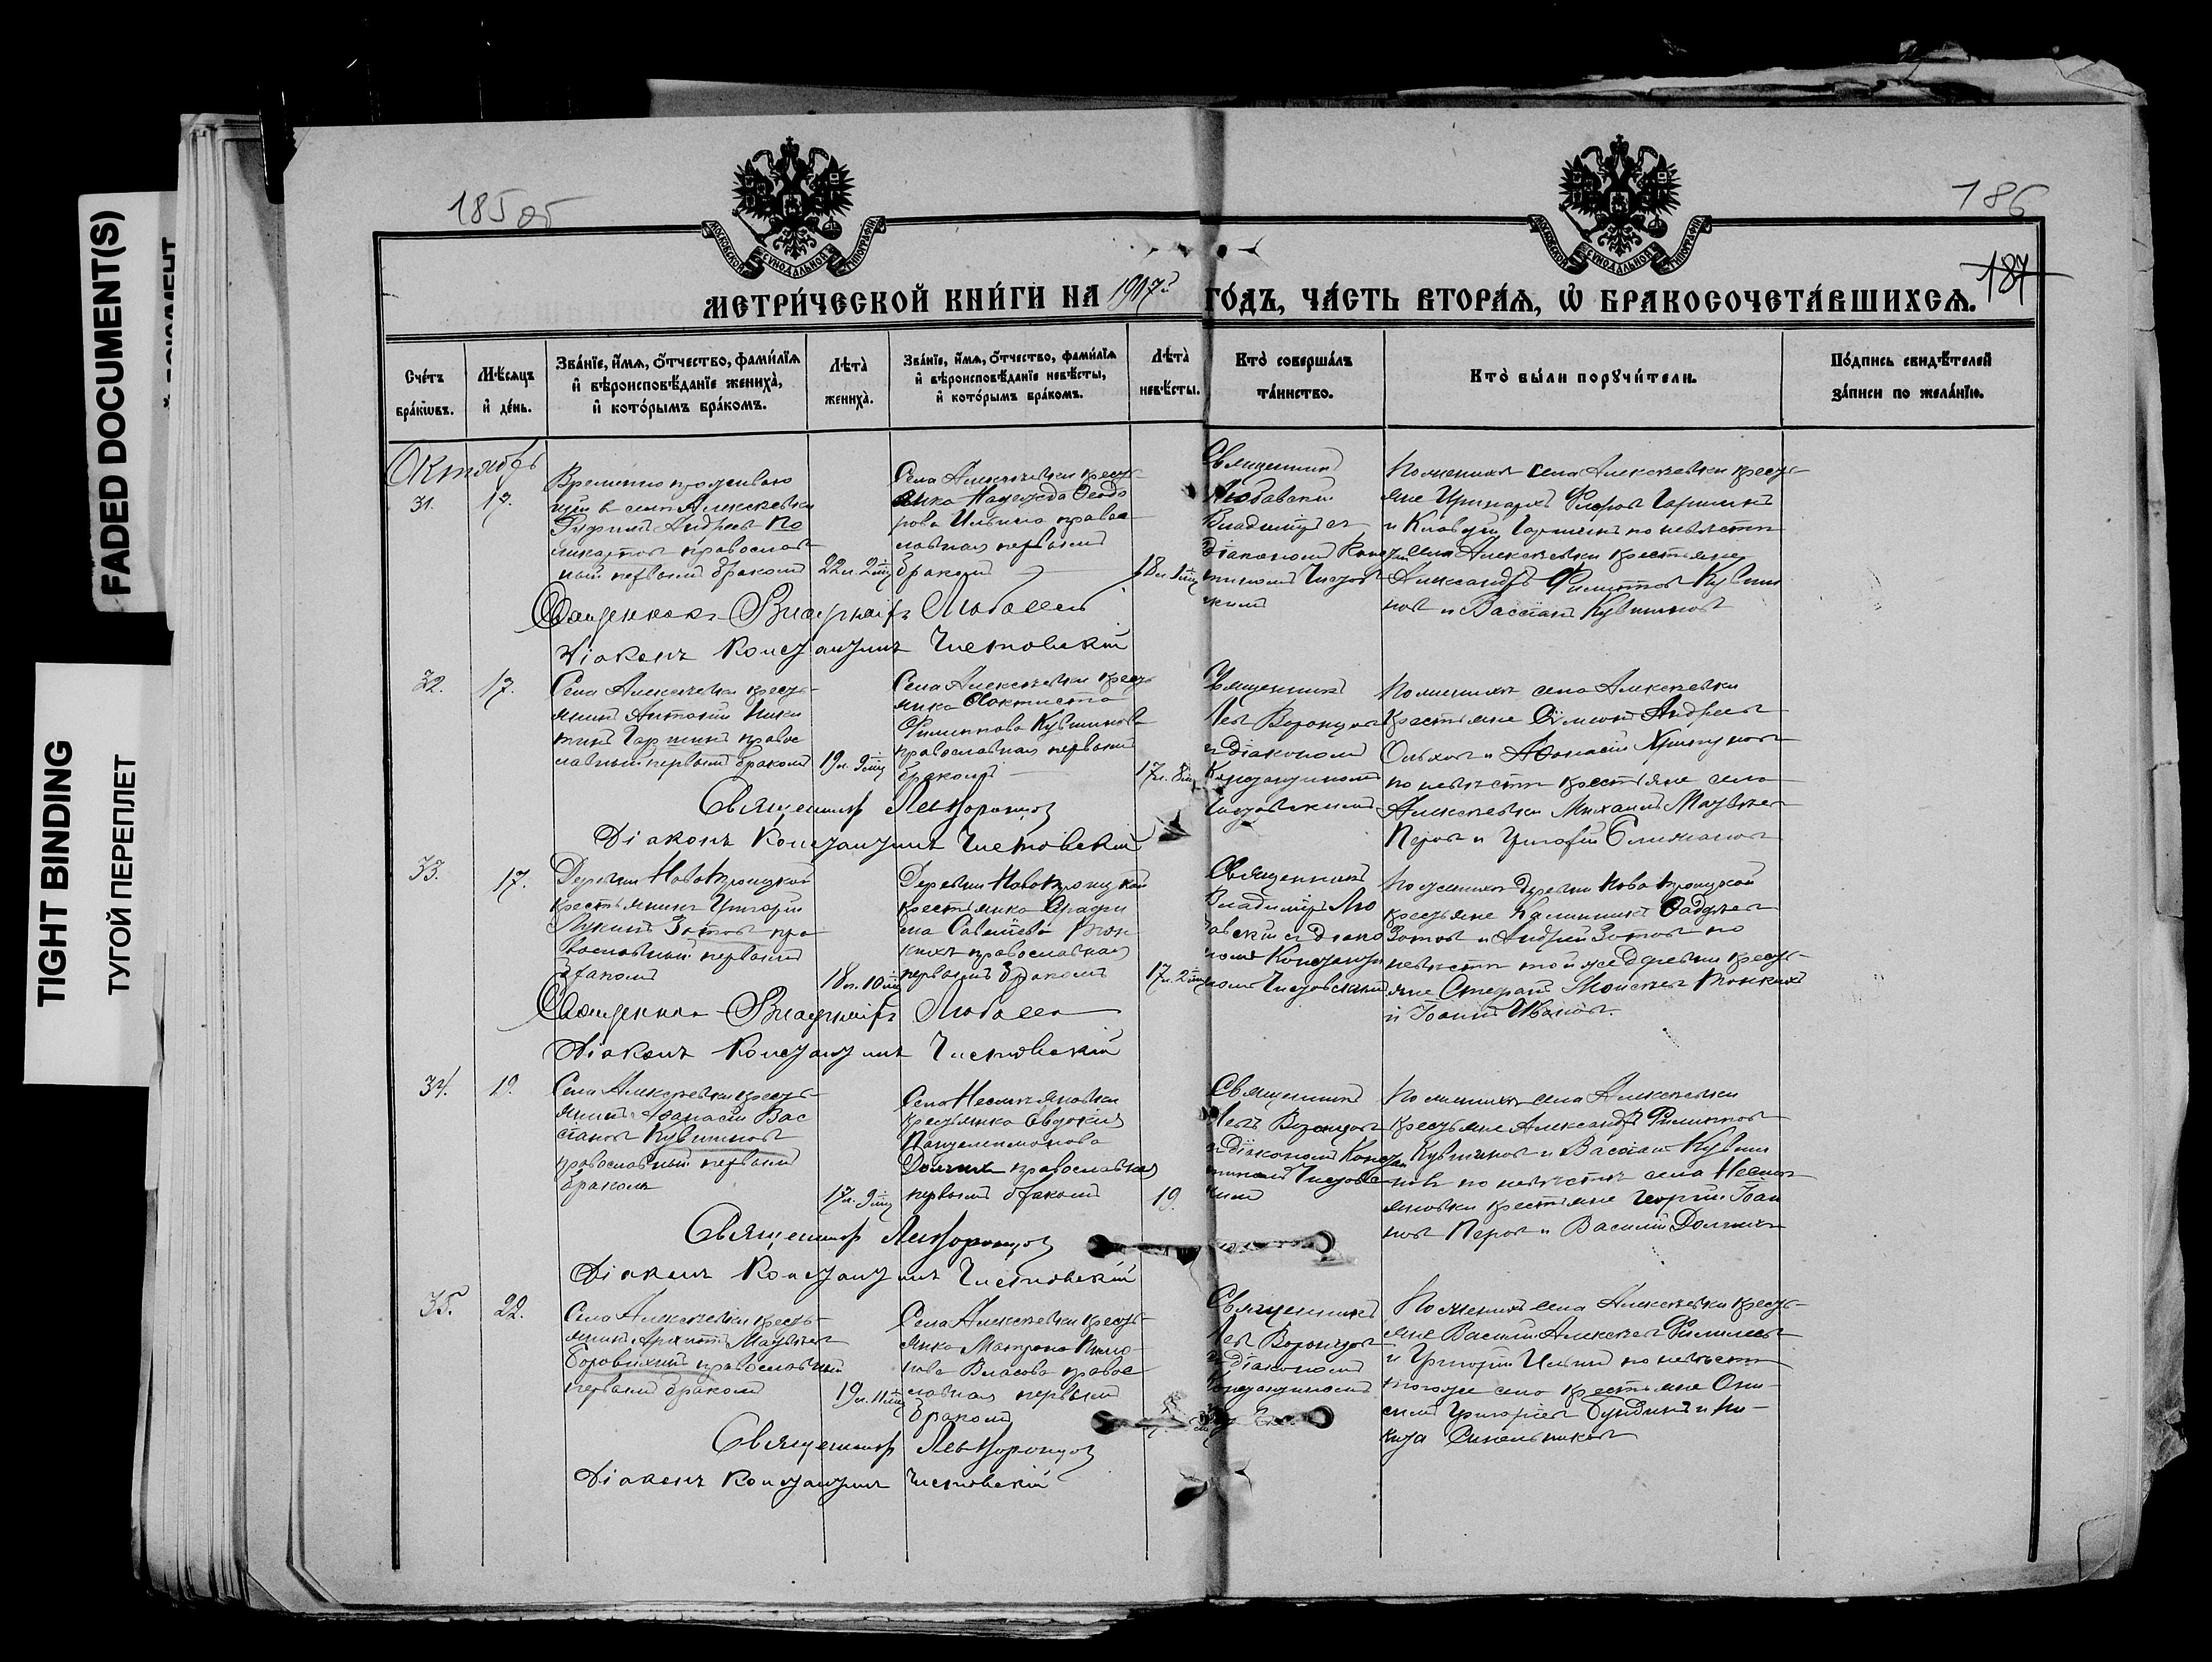 FADED DOCUMENT(S)
TIGHT BINDING
ТУГОЙ ПЕРЕПЛЕТ
185 об
186
187
МОСКОВСКОЙ СѴНОДАЛЬНОЙ ТИПОГРАФІИ
МОСКОВСКОЙ СѴНОДАЛЬНОЙ ТИПОГРАФІИ
МЕТРИ́ЧЕСКОЙ КНИ́ГИ НА 1907й ГО́ДЪ, ЧА́СТЬ ВТОРА́Ѧ, Ѡ҆ БРАКОСОЧЕТА́ВШИХСѦ.
Сче́тъ бра́кѡвъ.
Мѣ́сѧцъ и҆ де́нь.
Зва́нїе, и҆́мѧ, ѻ҆́тчество, фами́лїѧ и҆ вѣроисповѣ́данїе жениха̀, и҆ кото́рымъ бра́комъ.
Лѣта̀ жениха̀.
Зва́нїе, и҆́мѧ, ѻ҆́тчество, фами́лїѧ и҆ вѣроисповѣ́данїе невѣ́сты, и҆ кото́рымъ бра́комъ.
Лѣта̀ невѣ́сты.
Кто̀ соверша́лъ та́инство.
Кто̀ бы́ли порꙋчи́тели.
По́дпись свидѣ́телей за́писи по жела́нїю.
Октябрь
31.
17.
Временно проживаю
щій в селе Алексеевки
Андреев По
ликарпов православ
ный первым браком
22 л. 2 мц
Села Алексеевки кресть
янка Надежда Ѳеодо
рова Ильина право
славная первым
браком
18 л. 1 мц
Священник
Любавский
Владимір с
діаконом Констан
тином Чистов
ским
По женихе села Алексеевки кресть
яне Іринарх Флоров Гаршин
и Клавдий Гаршин по невесте
села Алексеевки крестьяне
Александр Филиппов Кувшин
нов и Вассіан Кувшинов
Священник Владимір Любавский
Діакон Константин Чистовский
32.
17.
Села Алексеевки кресть
янин Антоний Ники
тин Гаршин правос
лавный первым браком
19 л. 9 мц
Села Алексеевки кресть
янка Ѳоктиста
Филиппова Кувшинова
православная первым
браком
17 л. 8 мц
Священник
Лев Воронцов
с діаконом
Константином
Чистовским
По женихе села Алексеевки
крестьяне Сѵмеон Андреев
Ольхов и Аѳанасій
по невесте крестьяне села
Алексеевки Михаил Матвеев
Перов и Григорій
Священник Лев Воронцов
Діакон Константин Чистовский
33.
17.
Деревни Новотроицкой
крестьянин Григорий
Лукин Зотов пра
вославный первым
браком
18 л. 10 мц
Деревни Новотроицкой
крестьянка Серафи
ма Савватіева Тон
ких православная
первым браком
17 л. 2 мц
Священник
Владимір Лю
бавский с діако
ном Константи
ном Чистовским
По женихе деревни Новотроицкой
крестьяне Калинник Фаддеев
Зотов и Андрей Зотов по
невесте той же деревни кресть
яне Стефан Моисеев Тонких
и Іоанн Иванов.
Священник Владимір Любавский
Діакон Константин Чистовский
34.
19.
Села Алексеевки кресть
янин Аѳанасий Вас
сіанов Кувшинов
православный первым
браком
17 л. 9 мц
Села Несмеяновки
крестьянка Евдокия
Пантелеимонова
Долгих православная
первым браком
19.
Священник
Лев Воронцов
с діаконом Констан
тином Чистовс
ким
По женихе села Алексеевки
крестьяне Александр Филиппов
Кувшинов и Вассіан Кувши
нов по невесте села Несме
яновки крестьяне Георгій Іоан
нов Перов и Василий Долгих
Священник Лев Воронцов
Діакон Константин Чистовский
35.
22.
Села Алексеевки кресть
янин Архип Матвеев
Боровихин православный
первым браком
19 л. 11 мц
Села Алексеевки кресть
янка Матрона
Власова правос
лавная первым
браком
Священник
Лев Воронцов
с діаконом
Константином
По женихе села Алексеевки кресть
яне Василий Алексеев
и Григорий Ильин по невесте
того же села крестьяне Они
сим Григорьев Бундин и Ни
кита Синельников
Священник Лев Воронцов
Діакон Константин Чистовский